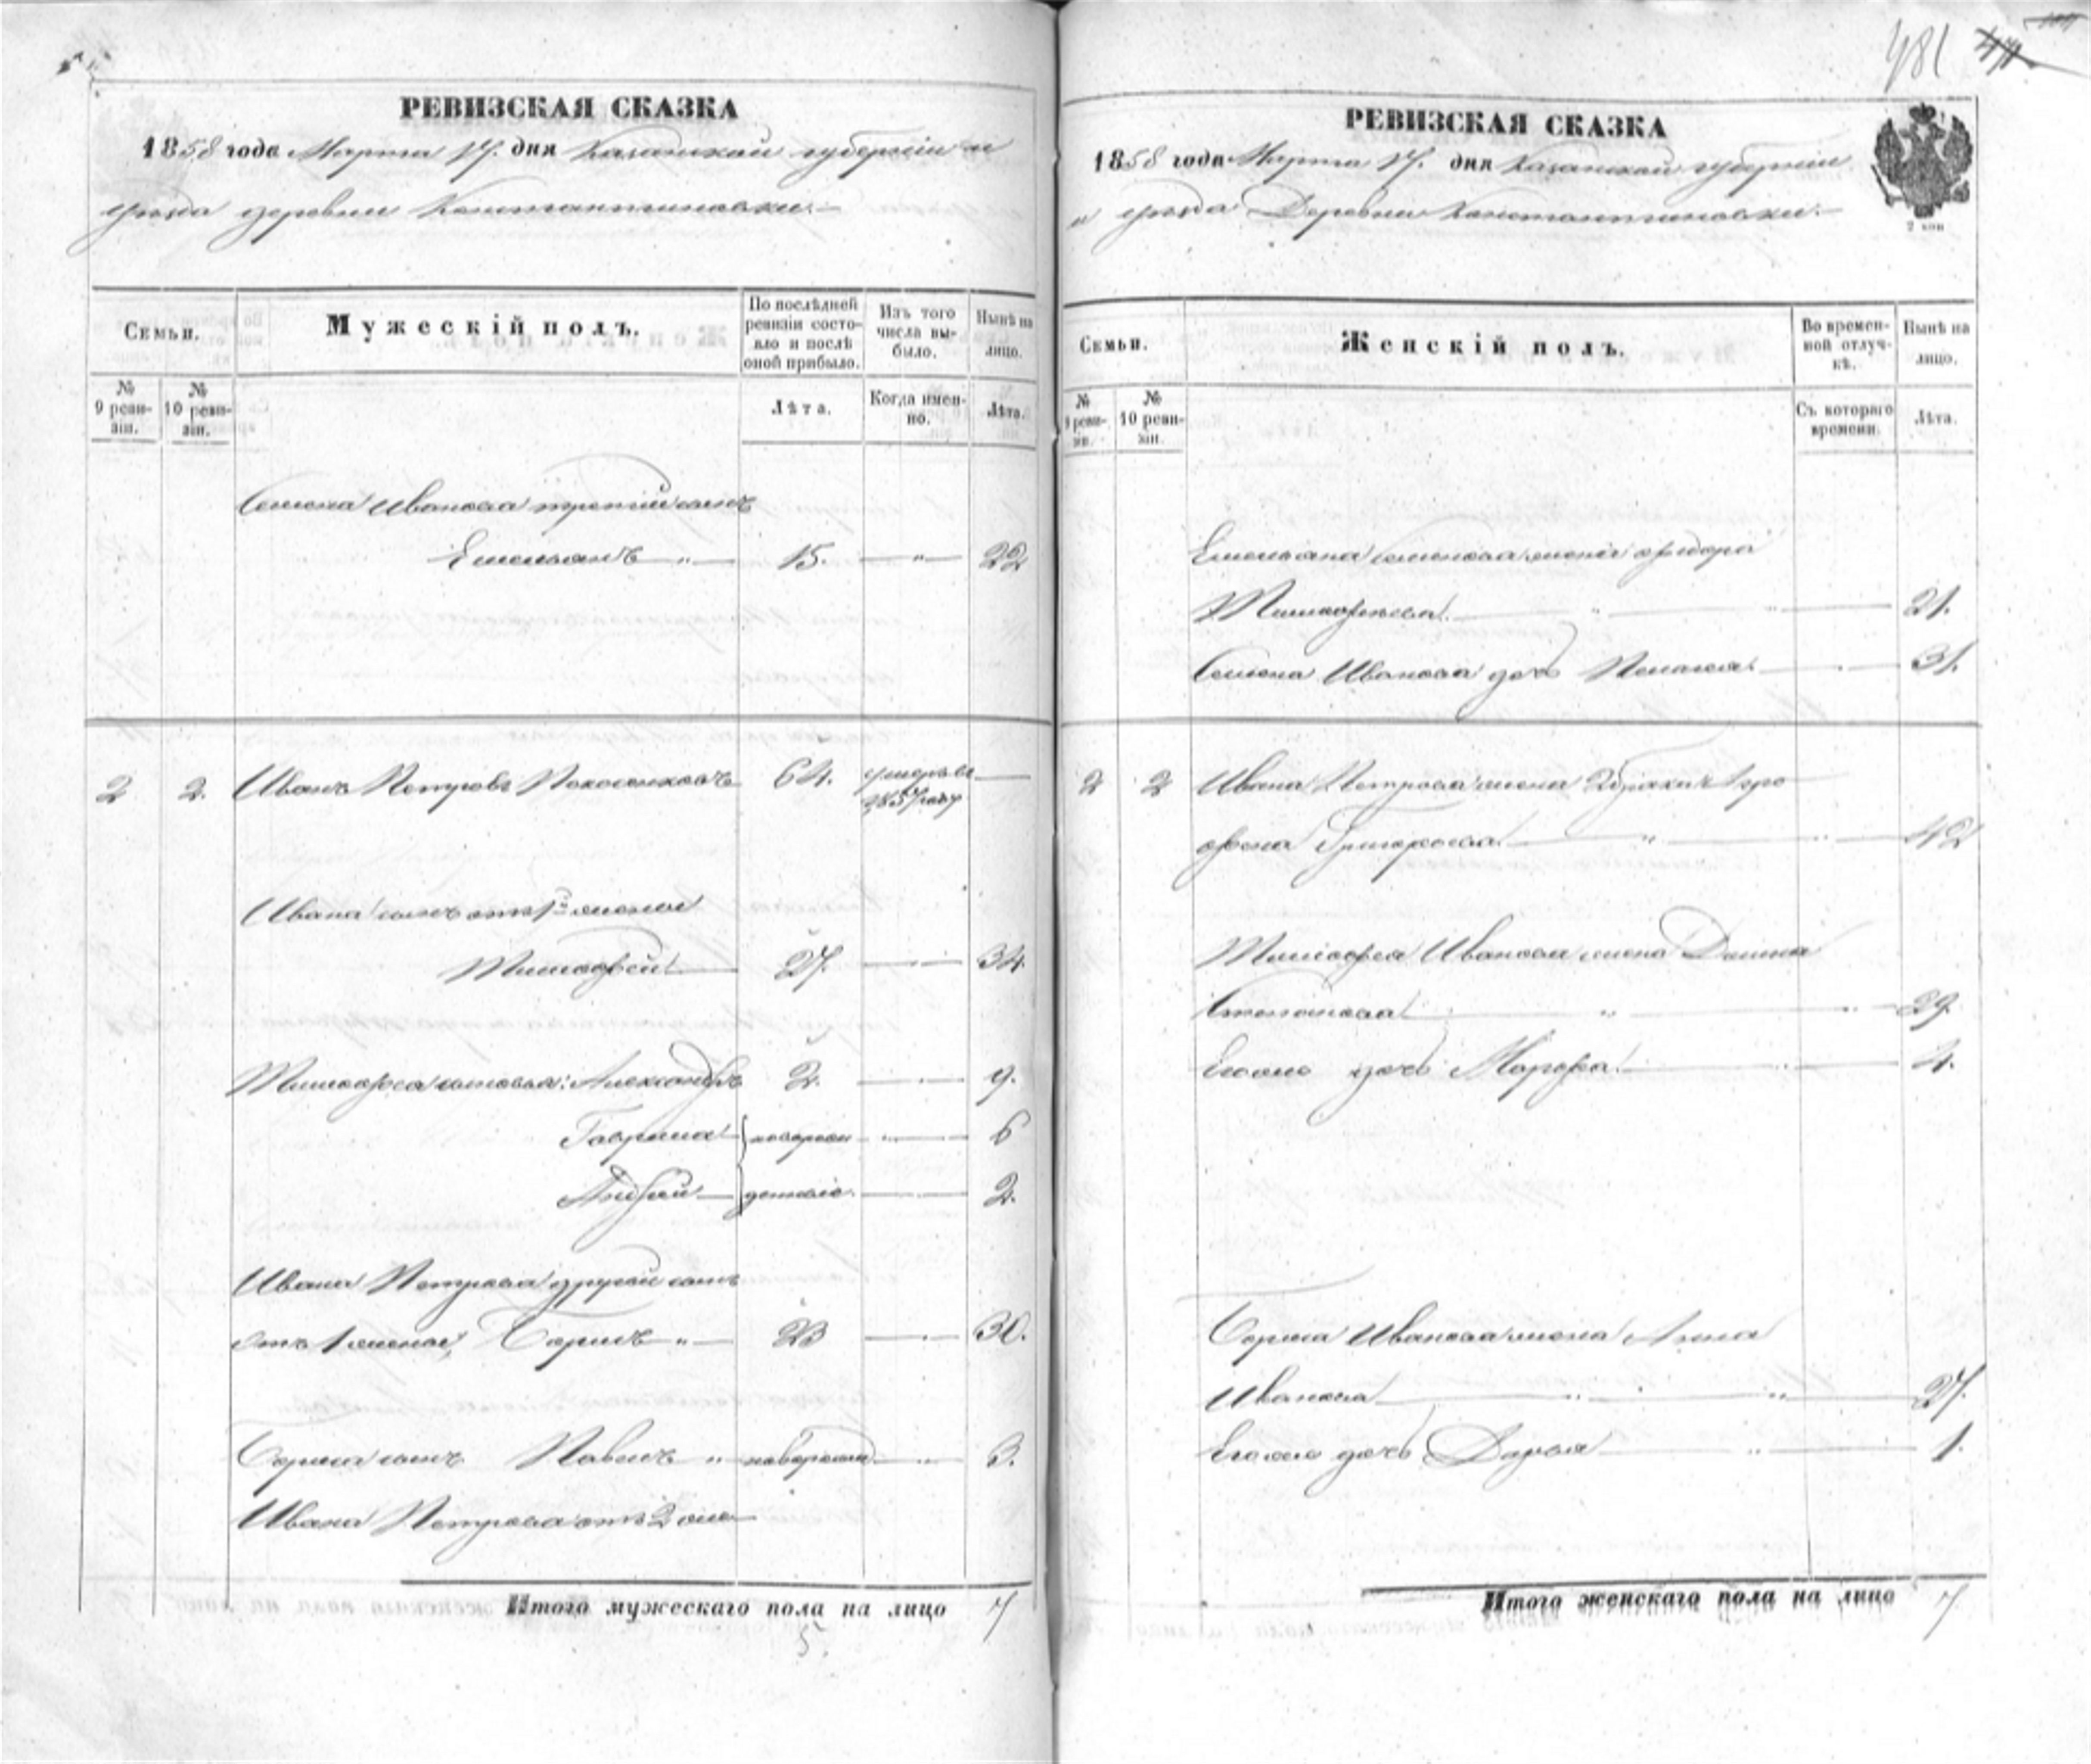 481
РЕВИЗСКАЯ СКАЗКА
1858 года Марта 17. дня Казанской губерніи и
уезда деревни Константиновки.
Семьи.
Мужескій полъ.
По послѣдней ревизіи состояло и послѣ оной прибыло.
Изъ того числа выбыло.
Нынѣ на лицо.
№ 9 ревизіи.
№ 10 ревизіи.
Лѣта.
Когда именно.
Лѣта.
Семена Иванова третій сынъ
Емельянъ " 15. " 22
2 2. Иванъ Петровъ 64. умеръ въ
1857 году
Ивана сынъ отъ 1й жены
Тимофей 27. 34.
Тимофея сыновья: Александръ 2. 9.
Гаврила новорож 6
Андрей денные 2.
Ивана Петрова другой сынъ
отъ 1 жены, Борисъ " 23 30.
Бориса сынъ Павелъ " новорож. " 3.
Ивана Петрова отъ 2 же
Итого мужескаго пола на лицо 7
5.
РЕВИЗСКАЯ СКАЗКА
1858 года Марта 17. дня Казанской губерніи
и уезда Деревни Константиновки.
2 коп
Семьи.
Женскій полъ.
Во временной отлучкѣ.
Нынѣ на лицо.
№ 9 ревизіи.
№ 10 ревизіи.
Съ котораго времени.
Лѣта.
Емельяна Семенова жена Федора
Тимофеева 21.
Семена Иванова дочь Пелагея 31.
2 2 Ивана Петрова жена 2 брака Афро
фена Григорьева 42
Тимофея Иванова жена Домна
Степанова 29.
Ево же дочь Марфа 4.
Бориса Иванова жена Анна
Иванова 27.
Ево же дочь Дарья 1.
Итого женскаго пола на лицо 7